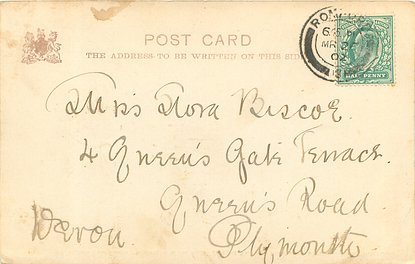 POST CARD
THE ADDRESS TO BE WRITTEN ON THIS SIDE
HALF PENNY
Miss Flora Biscoe.
4 Queen's Gate Terrace.
Queen's Road.
Plymouth.
Devon.